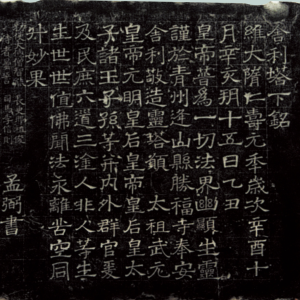 舍利塔下銘
維大隋仁壽元年歲次辛酉十
月辛亥朔十五日乙丑
皇帝普爲一切法界幽顯生靈
謹於青州逢山縣勝福寺奉安
舍利敬造靈塔願 太祖武元
皇帝元明皇后皇帝皇后皇太
子諸王子孫等并內外群官爰
及民庶六道三塗人非人等生
生世世值佛聞法永離苦空同
升妙果
孟弼書